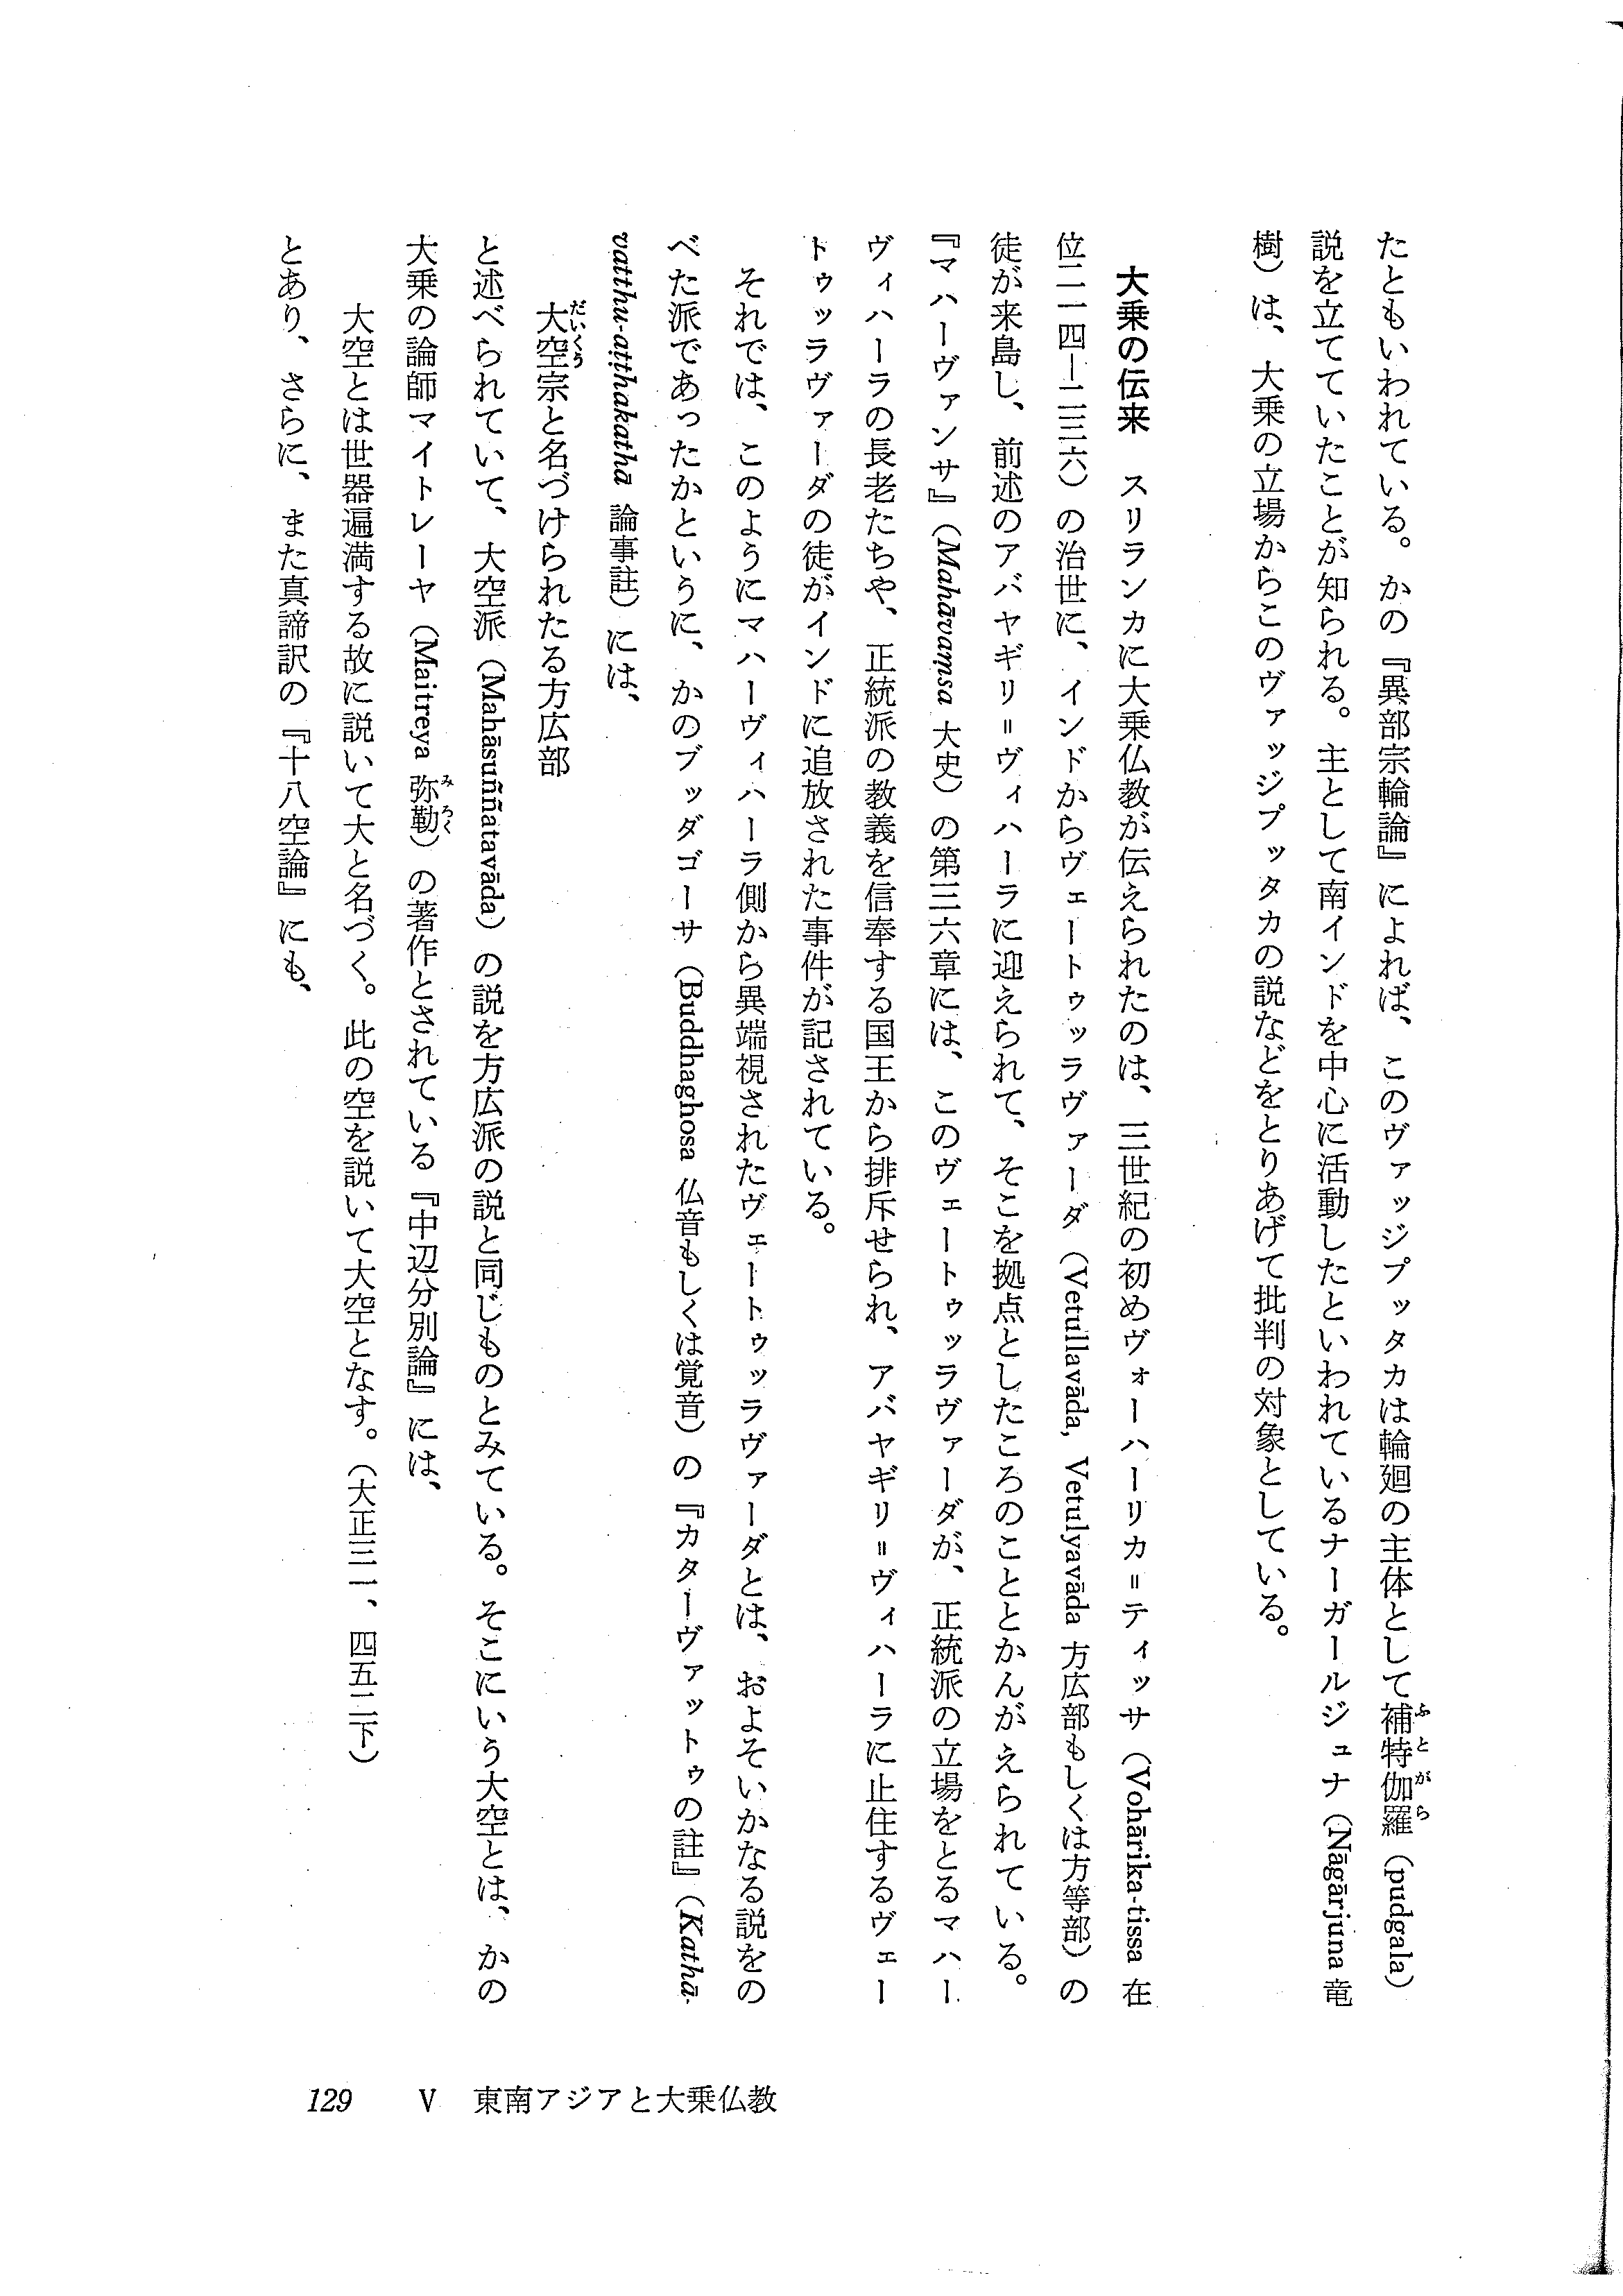 たともいわれている。かの『異部宗輪論』によれば、このヴァッジプッタカは輪廻の主体として補特伽羅（pudgala）
説を立てていたことが知られる。主として南インドを中心に活動したといわれているナーガールジュナ（Nāgārjuna 竜
樹）は、大乗の立場からこのヴァッジプッタカの説などをとりあげて批判の対象としている。
大乗の伝来　スリランカに大乗仏教が伝えられたのは、三世紀の初めヴォーハーリカ＝ティッサ（Vohārika-tissa 在
位二一四―二三六）の治世に、インドからヴェートゥッラヴァーダ（Vetullavāda, Vetulyavāda 方広部もしくは方等部）の
徒が来島し、前述のアバヤギリ＝ヴィハーラに迎えられて、そこを拠点としたころのこととかんがえられている。
『マハーヴァンサ』（Mahāvaṃsa 大史）の第三六章には、このヴェートゥッラヴァーダが、正統派の立場をとるマハー
ヴィハーラの長老たちや、正統派の教義を信奉する国王から排斥せられ、アバヤギリ＝ヴィハーラに止住するヴェー
トゥッラヴァーダの徒がインドに追放された事件が記されている。
それでは、このようにマハーヴィハーラ側から異端視されたヴェートゥッラヴァーダとは、およそいかなる説をの
べた派であったかというに、かのブッダゴーサ（Buddhaghosa 仏音もしくは覚音）の『カターヴァットゥの註』（Kathā-
vatthu-aṭṭhakathā 論事註）には、
大空宗と名づけられたる方広部
と述べられていて、大空派（Mahāsuññatavāda）の説を方広派の説と同じものとみている。そこにいう大空とは、かの
大乗の論師マイトレーヤ（Maitreya 弥勒）の著作とされている『中辺分別論』には、
大空とは世器遍満する故に説いて大と名づく。此の空を説いて大空となす。（大正三一、四五二下）
とあり、さらに、また真諦訳の『十八空論』にも、
129　V　東南アジアと大乗仏教